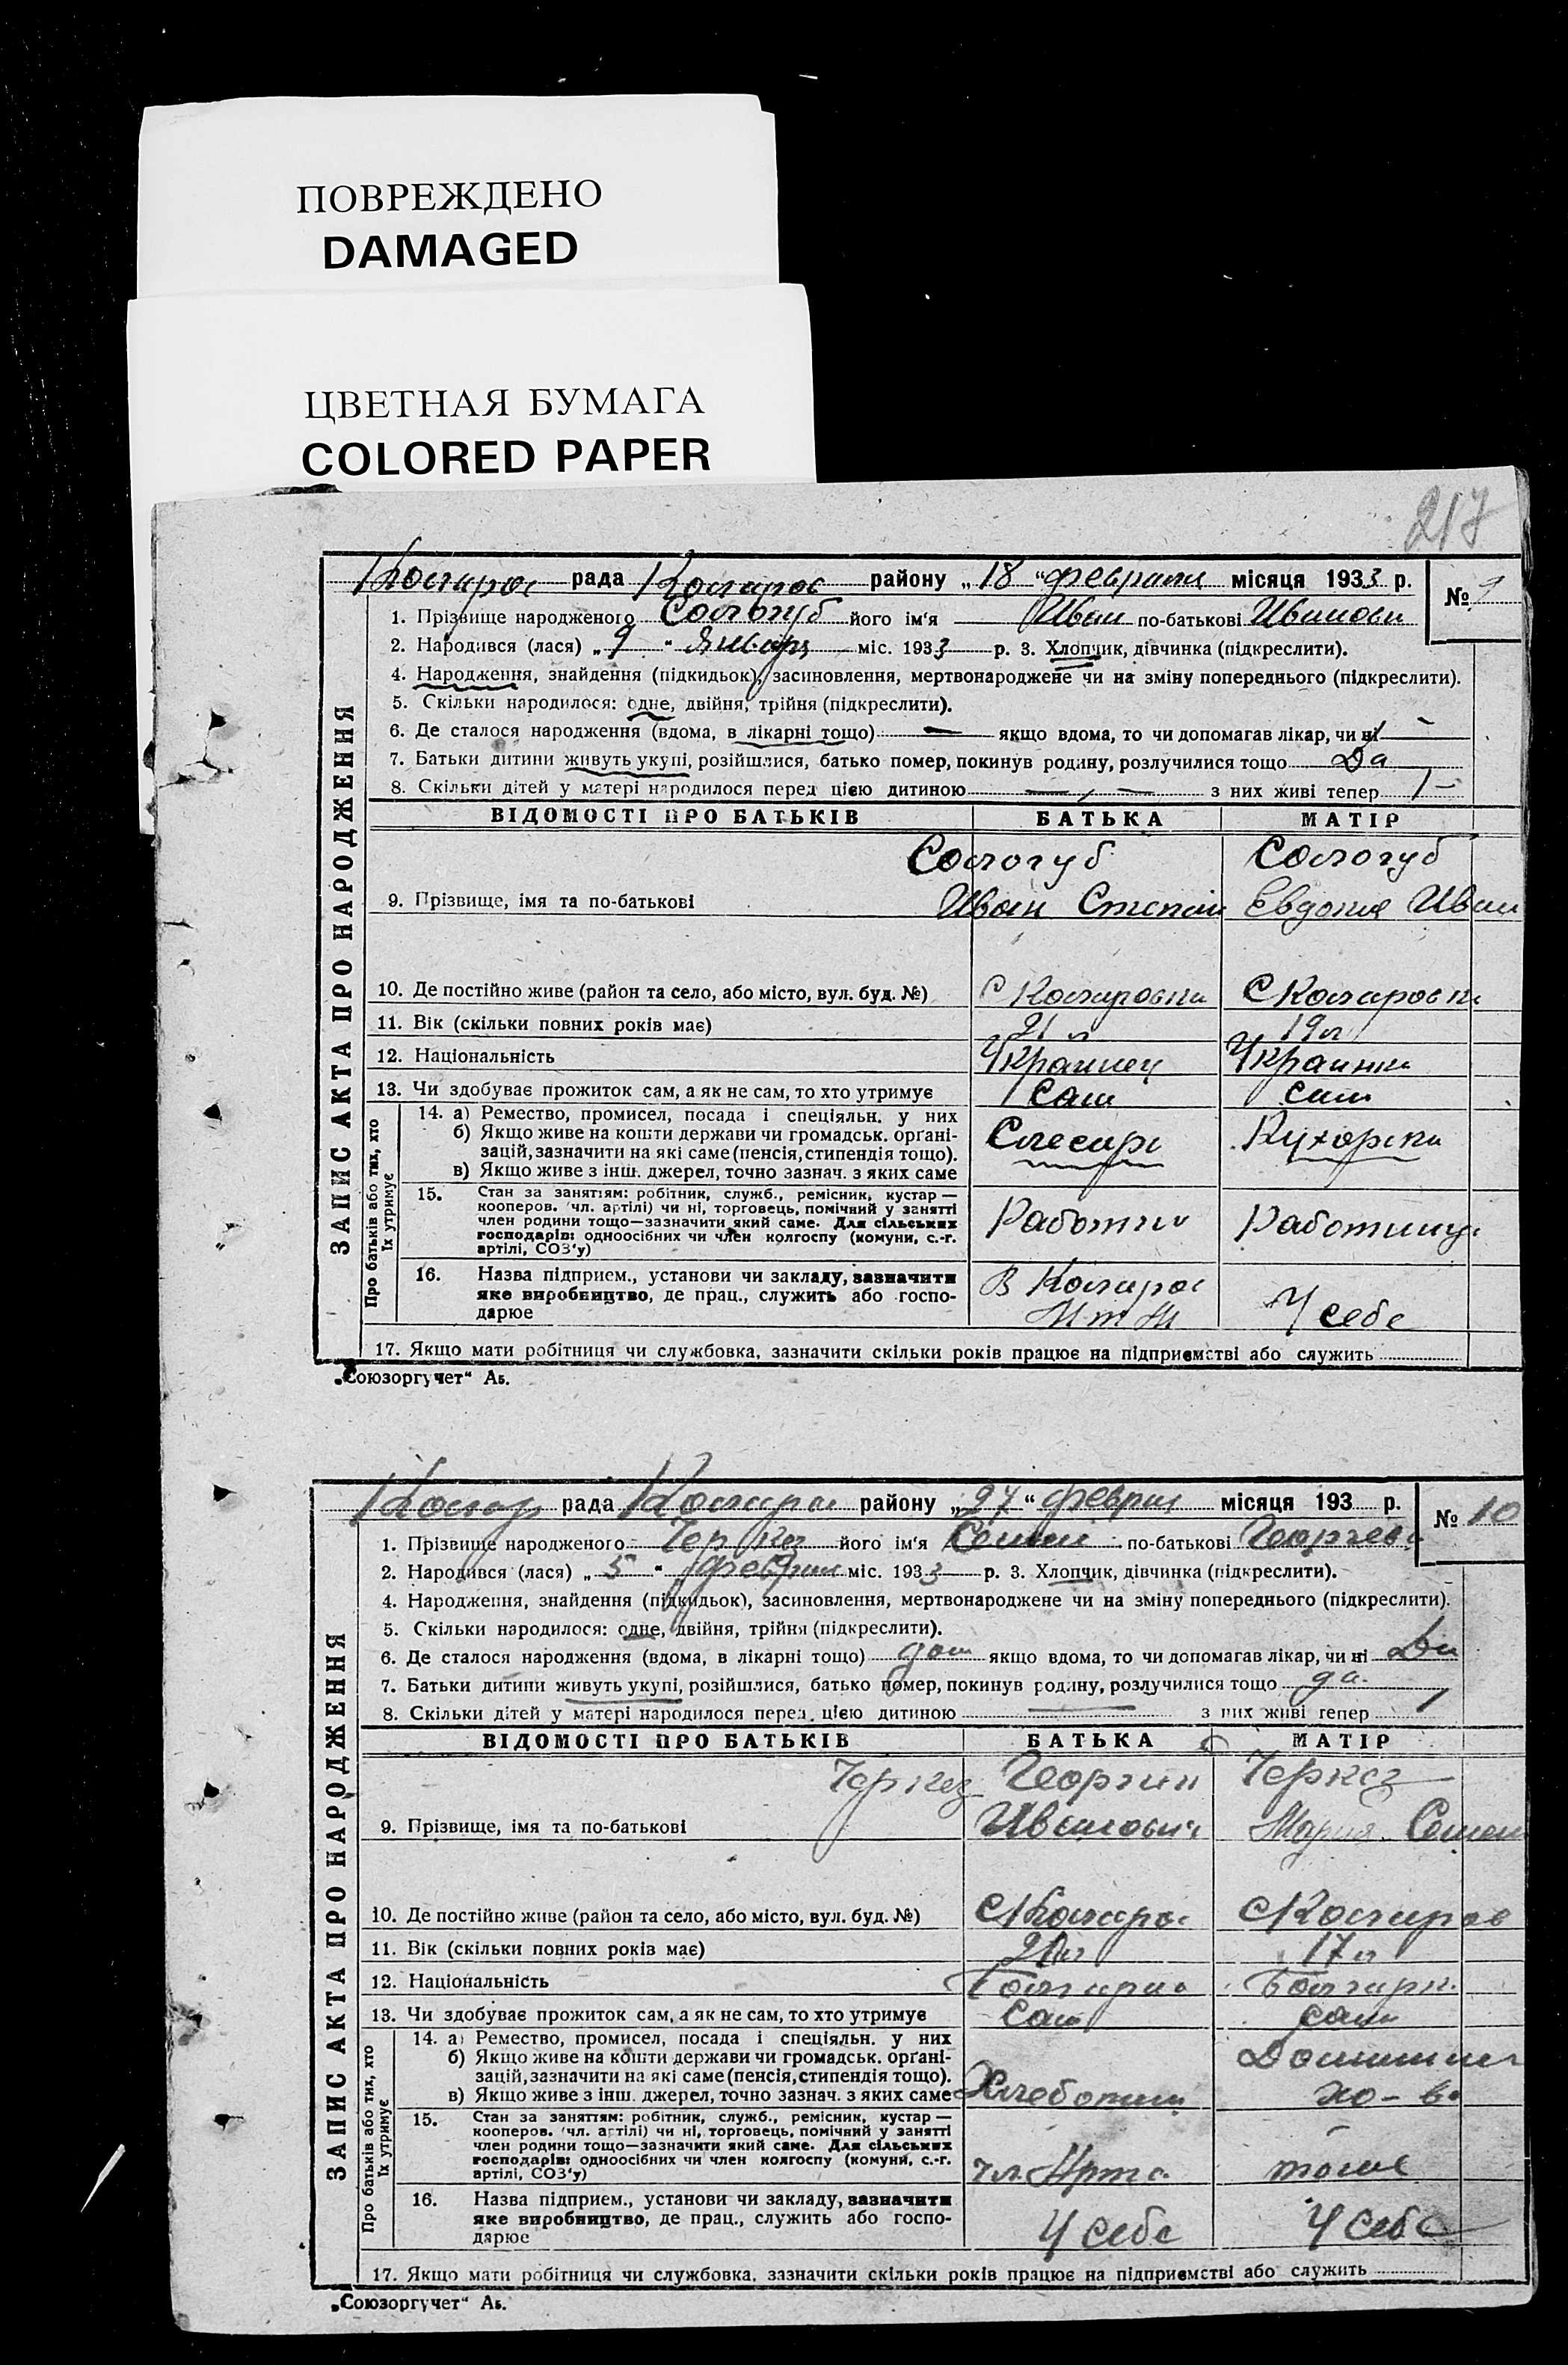 ПОВРЕЖДЕНО
DAMAGED
ЦВЕТНАЯ БУМАГА
COLORED PAPER
217
рада району „18“ февраля місяця 1933 р. № 9
1. Прізвище народженого Сологуб його ім'я Иван по-батькові Иванови
2. Народився (лася) „9“ Января міс. 1933 р. 3. Хлопчик, дівчинка (підкреслити).
4. Народження, знайдення (підкидьок), засиновлення, мертвонароджене чи на зміну попереднього (підкреслити).
5. Скільки народилося: одне, двійня, трійня (підкреслити).
6. Де сталося народження (вдома, в лікарні тощо) — якщо вдома, то чи допомагав лікар, чи ні —
7. Батьки дитини живуть укупі, розійшлися, батько помер, покинув родину, розлучилися тощо Да
8. Скільки дітей у матері народилося перед цією дитиною — з них живі тепер 1
ВІДОМОСТІ ПРО БАТЬКІВ БАТЬКА МАТІР
Сологуб Сологуб
9. Прізвище, імя та по-батькові Иван Степан Евдокия Иван
10. Де постійно живе (район та село, або місто, вул. буд. №)
11. Вік (скільки повних років має) 21 л 19 л
12. Національність Украинец Украинка
13. Чи здобуває прожиток сам, а як не сам, то хто утримує сам сам
14. а) Ремество, промисел, посада і спеціяльн. у них
б) Якщо живе на кошти держави чи громадськ. орґані-
зацій, зазначити на які саме (пенсія, стипендія тощо). Слесарь Кухарка
в) Якщо живе з інш. джерел, точно зазнач. з яких саме
15. Стан за заняттям: робітник, служб., ремісник, кустар —
кооперов. чл. артілі) чи ні, торговець, помічний у занятті
член родини тощо—зазначити який саме. Для сільських Работник Работница
господарів: одноосібних чи член колгоспу (комуни, с.-г.
артілі, СОЗ'у)
16. Назва підприєм., установи чи закладу, зазначити
яке виробництво, де прац., служить або госпо-
дарює У себе
17. Якщо мати робітниця чи службовка, зазначити скільки років працює на підприємстві або служить
„Союзоргучет“ Аб.
ЗАПИС АКТА ПРО НАРОДЖЕННЯ
Про батьків або тих, хто їх утримує
рада району „27“ февраля місяця 193 р. № 10
1. Прізвище народженого Черкез його ім'я Семен по-батькові Георгиев
2. Народився (лася) „5“ февраля міс. 1933 р. 3. Хлопчик, дівчинка (підкреслити).
4. Народження, знайдення (підкидьок), засиновлення, мертвонароджене чи на зміну попереднього (підкреслити).
5. Скільки народилося: одне, двійня, трійня (підкреслити).
6. Де сталося народження (вдома, в лікарні тощо) дом якщо вдома, то чи допомагав лікар, чи ні Да
7. Батьки дитини живуть укупі, розійшлися, батько помер, покинув родину, розлучилися тощо да
8. Скільки дітей у матері народилося перед цією дитиною — з них живі тепер 1
ВІДОМОСТІ ПРО БАТЬКІВ БАТЬКА МАТІР
Черкез Георгий Черкез
9. Прізвище, імя та по-батькові Иванович Мария Семен
10. Де постійно живе (район та село, або місто, вул. буд. №)
11. Вік (скільки повних років має) 17 л
12. Національність Болгарин Болгарк.
13. Чи здобуває прожиток сам, а як не сам, то хто утримує сам сам
14. а) Ремество, промисел, посада і спеціяльн. у них
б) Якщо живе на кошти держави чи громадськ. орґані- Домашнее
зацій, зазначити на які саме (пенсія, стипендія тощо).
в) Якщо живе з інш. джерел, точно зазнач. з яких саме Хлебопаш хо-во
15. Стан за заняттям: робітник, служб., ремісник, кустар —
кооперов. чл. артілі) чи ні, торговець, помічний у занятті
член родини тощо—зазначити який саме. Для сільських
господарів: одноосібних чи член колгоспу (комуни, с.-г. чл. Арте тоже
артілі, СОЗ'у)
16. Назва підприєм., установи чи закладу, зазначити
яке виробництво, де прац., служить або госпо- У себе У себе
дарює
17. Якщо мати робітниця чи службовка, зазначити скільки років працює на підприємстві або служить
„Союзоргучет“ Аб.
ЗАПИС АКТА ПРО НАРОДЖЕННЯ
Про батьків або тих, хто їх утримує